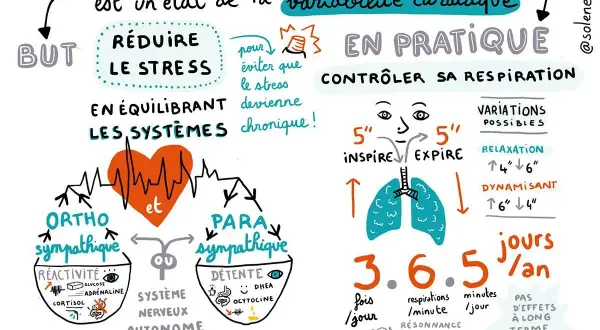 est un état de la variabilité cardiaque
@solene
BUT
RÉDUIRE
LE STRESS
pour
éviter que
le stress
devienne
chronique !
EN ÉQUILIBRANT
LES SYSTÈMES
ORTHO
sympathique
et
PARA
sympathique
RÉACTIVITÉ
GLUCOSE
ADRÉNALINE
CORTISOL
DÉTENTE
DHEA
OCYTOCINE
SYSTÈME
NERVEUX
AUTONOME
EN PRATIQUE
CONTRÔLER SA RESPIRATION
5" 5"
INSPIRE EXPIRE
VARIATIONS
POSSIBLES
RELAXATION
↑4" ↓6"
DYNAMISANT
↑6" ↓4"
3.6.5 jours
/an
fois
/jour
respirations
/minute
minutes
/jour
RÉSONANCE
PAS
D'EFFETS
À LONG
TERME